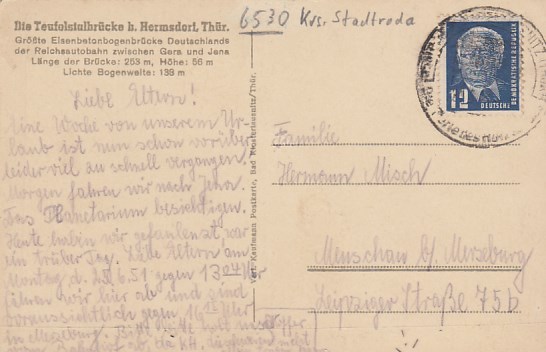 Die Teufelstalbrücke b. Hermsdorf, Thür.
Größte Eisenbetonbogenbrücke Deutschlands
der Reichsautobahn zwischen Gera und Jena
Länge der Brücke: 253 m, Höhe: 56 m
Lichte Bogenweite: 138 m
6530 Krs. Stadtroda
12
DEUTSCHE
DEMOKRATISCHE REPUBLIK
Liebe Eltern!
Eine Woche von unserem Ur-
laub ist nun schon vorüber
leider viel zu schnell vergangen.
Morgen fahren wir nach Jena.
Das Planetarium besichtigen.
Heute haben wir gefaulenzt war
ein trüber Tag. Eltern am
Montag d. 25.6.51 gegen
fahren wir hier ab und sind
voraussichtlich gegen 16 Uhr
in Merseburg. Bitte
Verl. Kaufmann Postkarte, Bad Klosterlausnitz/Thür.
Familie
Hermann Misch
Menschau b/ Merseburg
Leipziger Straße 75b